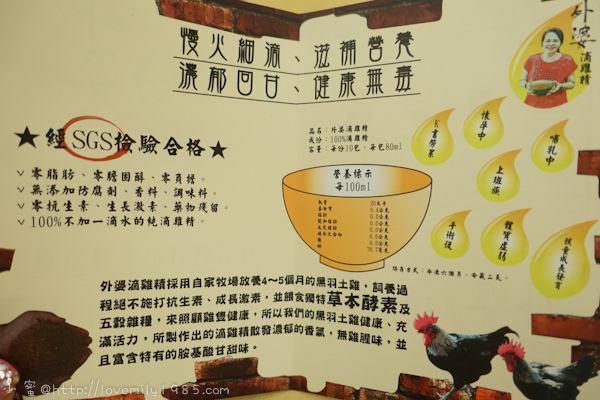 慢火細滴、滋補營養
濃郁回甘、健康無毒
外婆
滴雞精
★經SGS檢驗合格★
品名：外婆滴雞精
成份：100%滴雞精
容量：每份10包，每包80ml
∨零脂肪、零膽固醇、零負擔。
∨無添加防腐劑、香料、調味料。
∨零抗生素、生長激素、藥物殘留。
∨100%不加一滴水的純滴雞精。
營養標示
每100ml
熱量 26大卡
蛋白質 6.4公克
脂肪 0.0公克
飽和脂肪 0.0公克
反式脂肪 0.0公克
碳水化合物 0.0公克
糖 0.0公克
鈉 70.7毫克
K書學眾
懷孕中
哺乳中
上班族
手術後
體質虛弱
孩童成長發育
保存方式：冷凍六個月，冷藏二天。
外婆滴雞精採用自家牧場放養4～5個月的黑羽土雞，飼養過
程絕不施打抗生素、成長激素，並餵食獨特草本酵素及
五穀雜糧，來照顧雞隻健康，所以我們的黑羽土雞健康、充
滿活力，所製作出的滴雞精散發濃郁的香氣，無雞腥味，並
且富含特有的胺基酸甘甜味。
小蜜@http://lovemily1985.com